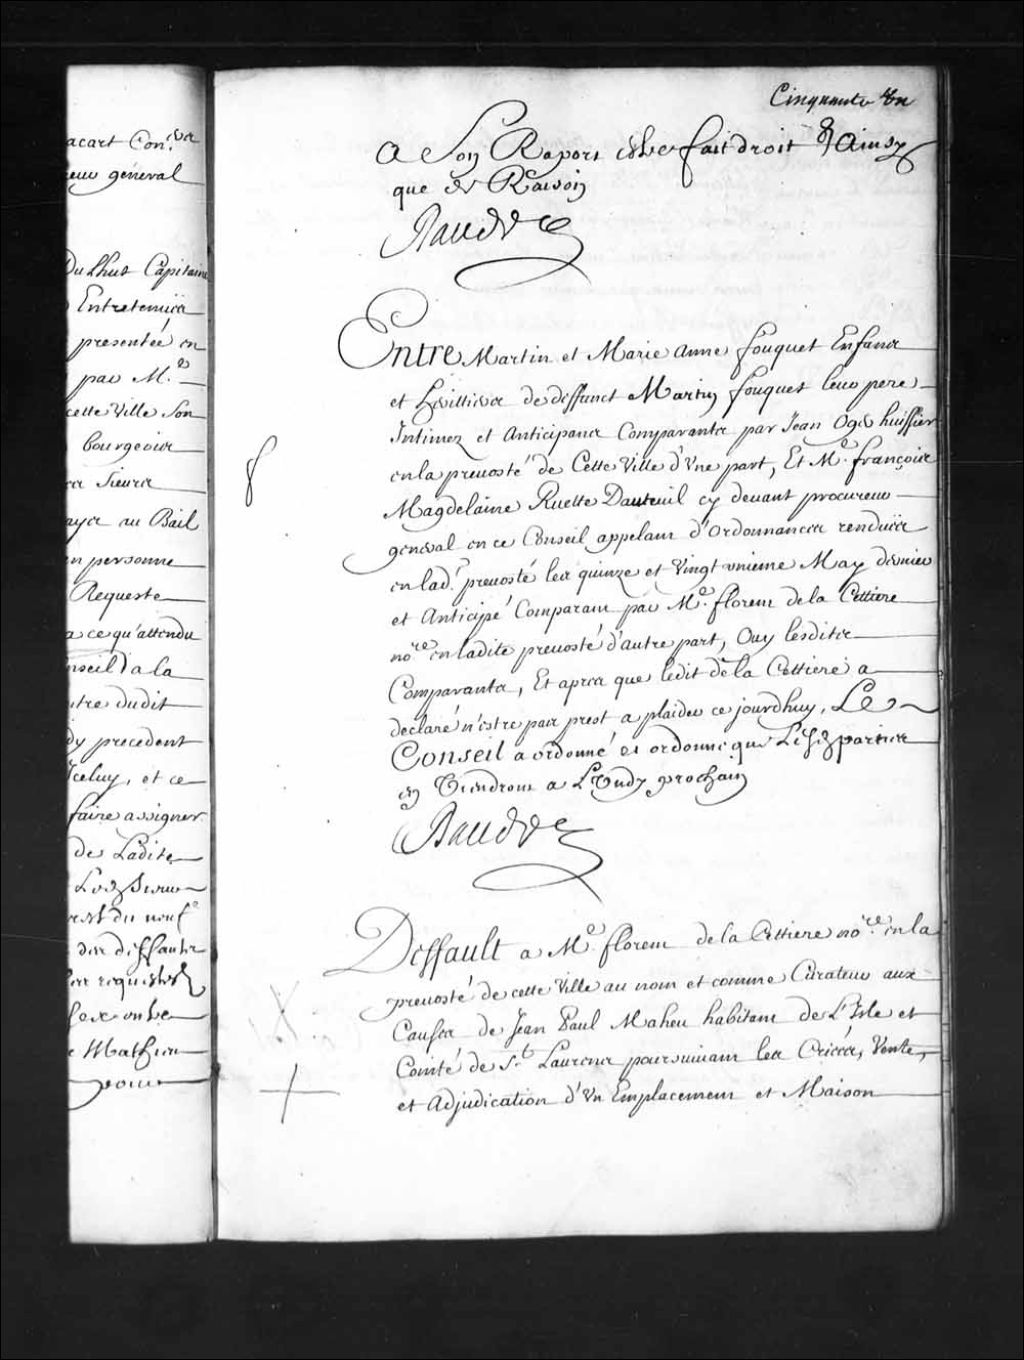 acart Con.er
eur géneral
Du Lhut Capitaine
Entretenüs
presentée en
par M.e
cette Ville Son
bourgeois
es Sieurs
ayes au Bail
en personne
Requeste
a ce qu'attendu
nseil a la
utre dudit
dy precedent
Iceluy, et ce
faire assigner
de Ladite
du neuf
des deffauts
Mathieu
Cinquante Un
a Son Raport estre fait droit Ainsy
que de Raison
Raudot
Entre Martin et Marie Anne fouquet Enfans
et heritiers de deffunct Martin fouquet leur pere
Intimez et Anticipans Comparants par Jean Oger huissier
en la prevosté de Cette Ville d'Une part, Et M.e françois
Magdelaine Ruette Dauteuil cy devant procureur
general en ce Conseil appelant d'Ordonnances rendües
en lad. prevosté les quinze et Vingt unieme May dernier
et Anticipé Comparant par M.e florent de la Cettiere
no.re en ladite prevosté d'autre part, Ouy lesdites
Comparants, Et aprés que ledit de la Cettiere a
declaré n'estre pas prest a plaider ce jourdhuy, Le
Conseil a ordonné et ordonne que Lesd. parties
en Viendront a Lundy prochain
Raudot
Deffault a M.e florent de la Cettiere no.re en la
prevosté de cette Ville au nom et comme Curateur aux
Causes de Jean Paul Maheu habitant de L'Isle et
Comté de S.t Laurens poursuivant les Criées, Vente,
et Adjudication d'Un Emplacement et Maison